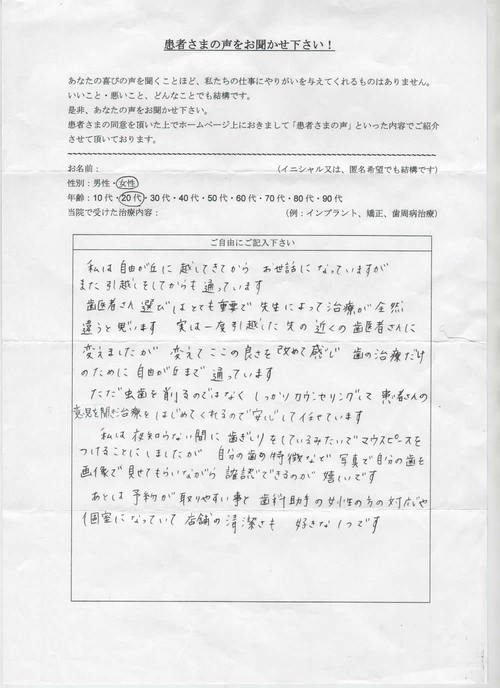 患者さまの声をお聞かせ下さい！
あなたの喜びの声を聞くことほど、私たちの仕事にやりがいを与えてくれるものはありません。
いいこと・悪いこと、どんなことでも結構です。
是非、あなたの声をお聞かせ下さい。
患者さまの同意を頂いた上でホームページ上におきまして「患者さまの声」といった内容でご紹介
させて頂いております。
お名前：（イニシャル又は、匿名希望でも結構です）
性別：男性・女性
年齢：10代・20代・30代・40代・50代・60代・70代・80代・90代
当院で受けた治療内容：（例：インプラント、矯正、歯周病治療）
ご自由にご記入下さい
私は自由が丘に越してきてから お世話になっていますが
また引越しそしてからも通っています
歯医者さん選びはとても重要で先生によって治療が全然
違うと思います 実は一度引越した先の近くの歯医者さんに
変えましたが 変えてここの良さを改めて感じ 歯の治療だけ
のために自由が丘まで通っています
ただ虫歯を削るのではなくしっかりカウンセリングして患者さんの
意見を聞き治療をはじめてくれるので安心して任せています
私は夜知らない間に歯ぎしりをしているみたいでマウスピースを
つけることにしましたが 自分の歯の特徴など写真で自分の歯を
画像で見せてもらいながら確認できるのが嬉しいです
あとは予約が取りやすい事と歯科助手の女性の方の対応や
個室になっていて店舗の清潔さも 好きな1つです